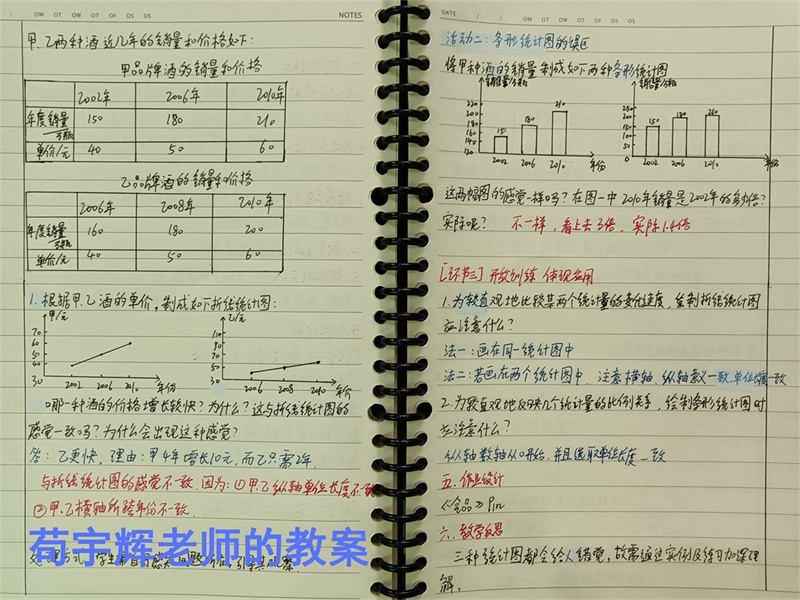 OM OT OW OT OF OS OS NOTES
甲.乙两种酒近几年的销量和价格如下:
甲品牌酒的销量和价格
2002年 2006年 2010年
年度销量/万瓶 150 180 210
单价/元 40 50 60
乙品牌酒的销量和价格
2006年 2008年 2010年
年度销量/万瓶 160 180 200
单价/元 40 50 60
1.根据甲.乙酒的单价,制成如下折线统计图:
甲/元 乙/元
70 60 50 40 30
110 90 70 50 30
2002 2006 2010 年份
2006 2008 2010 年份
哪一种酒的价格增长较快?为什么?这与折线统计图的
感觉一致吗?为什么会出现这种感觉?
答:乙更快,理由:甲4年增长10元,而乙只需2年.
与折线统计图的感觉不一致.因为:①甲.乙纵轴单位长度不一致
②甲.乙横轴所跨年份不一致.
苟宇辉老师的教案
DATE
OM OT OW OT OF OS OS
活动二:条形统计图的误区
将甲种酒的销量制成如下两种条形统计图
销售量/万瓶 销售量/万瓶
220 200 180 160 140 120
150 180 210
2002 2006 2010 年份
250 200 150 100 50 0
150 180 210
2002 2006 2010 年份
这两幅图的感觉一样吗?在图一中2010年销量是2002年的多少倍?
实际呢? 不一样,看上去3倍,实际1.4倍
[环节三]开放训练 体现应用
1.为较直观地比较某两个统计量的变化速度,绘制折线统计图
应注意什么?
法一:画在同一统计图中
法二:若画在两个统计图中,注意横轴.纵轴意义一致,单位长度一致
2.为较直观地反映几个统计量的比例关系,绘制条形统计图时
应注意什么?
纵轴数轴从0开始,并且选取单位长度一致
五.作业设计
《全品》P112
六.教学反思
三种统计图都会给人错觉,故需通过实例及练习加深理
解.